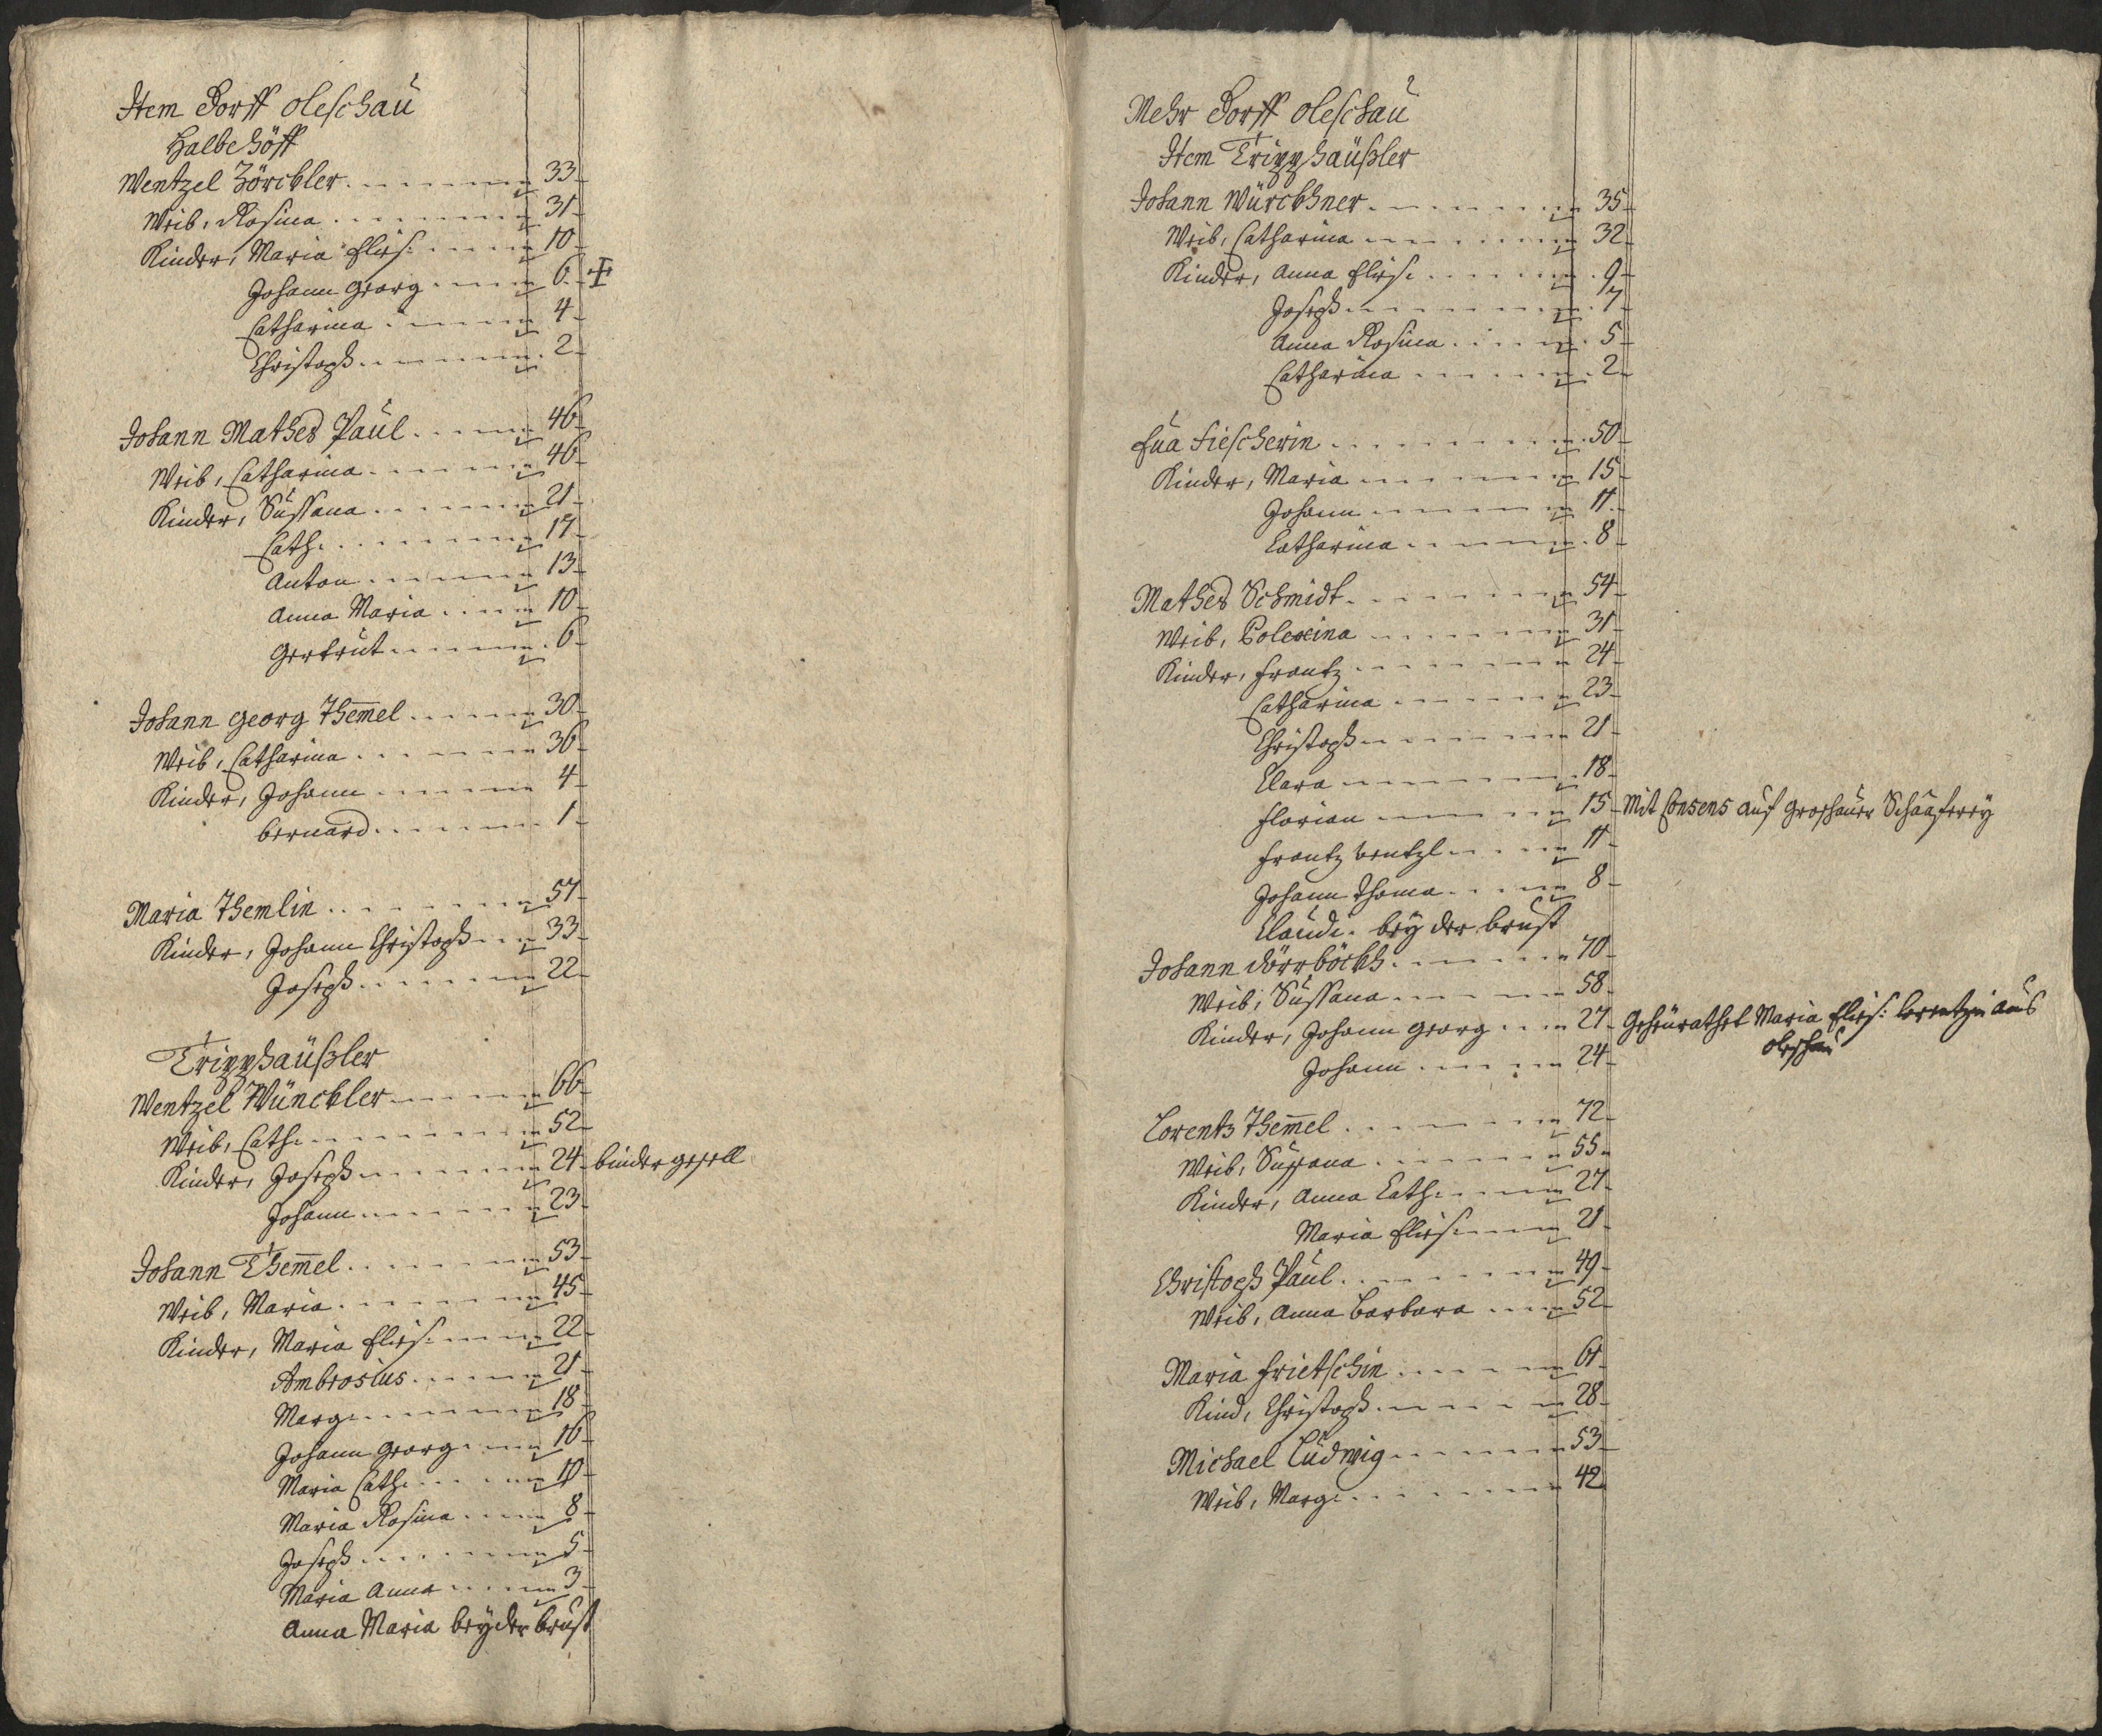 Item Dorff Oleschau
Halbe Höff
Wentzel Zörckler 33
Weib, Rosina 31
Kinder, Maria Elis: 10
Johann Georg 6
Catharina 4
Christoph 2
Johann Mathes Paul 46
Weib, Catharina 46
Kinder, Sußana 21
Cath: 17
Anton 13
Anna Maria 10
Gertrut 6
Johann Georg Themel 30
Weib, Catharina 36
Kinder, Johann 4
Bernard 1
Maria Themlin 57
Kinder, Johann Christoph 33
Joseph 22
Tripphäußler
Wentzel Wünckler 66
Weib, Cath: 52
Kinder, Joseph 24 bindergesell
Johann 23
Johann Themel 53
Weib, Maria 45
Kinder, Maria Elis: 22
Ambrosius 21
Marg: 18
Johann Georg 16
Maria Cath: 10
Maria Rosina 8
Joseph 5
Maria Anna 3
Anna Maria bey der brust
Mehr Dorff Oleschau
Item Tripphäußler
Johann Würckhner 35
Weib, Catharina 32
Kinder, Anna Elis: 9
Joseph 7
Anna Rosina 5
Catharina 2
Eua Fiescherin 50
Kinder, Maria 15
Johann 11
Catharina 8
Mathes Schmidt 54
Weib, Polexina 31
Kinder, Frantz 24
Catharina 23
Christoph 21
Clara 18
Florian 15 Mit Consens auf Groschauer Schäaferey
Frantz Wentzl 11
Johann Thoma 8
Claudi: bey der brust
Johann Dörrböckh 70
Weib, Sußana 58
Kinder, Johann Georg 27 Geheurathet Maria Elis: Lorentzin aus
Oleschau
Johann 24
Lorentz Themel 72
Weib, Sußana 55
Kinder, Anna Cath: 27
Maria Elis: 21
Christoph Paul 49
Weib, Anna Barbara 52
Maria Frietschin 61
Kind, Christoph 28
Michael Ludwig 53
Weib, Marg: 42